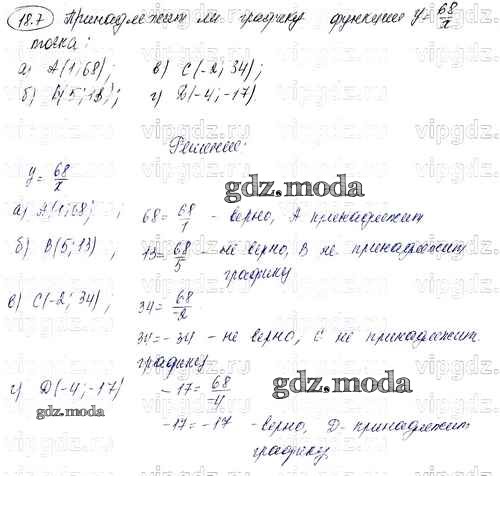 18.7 Принадлежит ли графику функции y = 68/x
точка:
а) A(1; 68); в) C(-2; 34);
б) B(5; 13); г) D(-4; -17)
Решение:
y = 68/x
gdz.moda
а) A(1; 68); 68 = 68/1 - верно, A принадлежит
б) B(5; 13) ; 13 = 68/5 - не верно, B не принадлежит
графику
в) C(-2; 34) ; 34 = 68/-2
34 = -34 - не верно, C не принадлежит
графику
г) D(-4; -17) -17 = 68/-4
gdz.moda
gdz.moda
-17 = -17 - верно, D - принадлежит
графику
vipgdz.ru